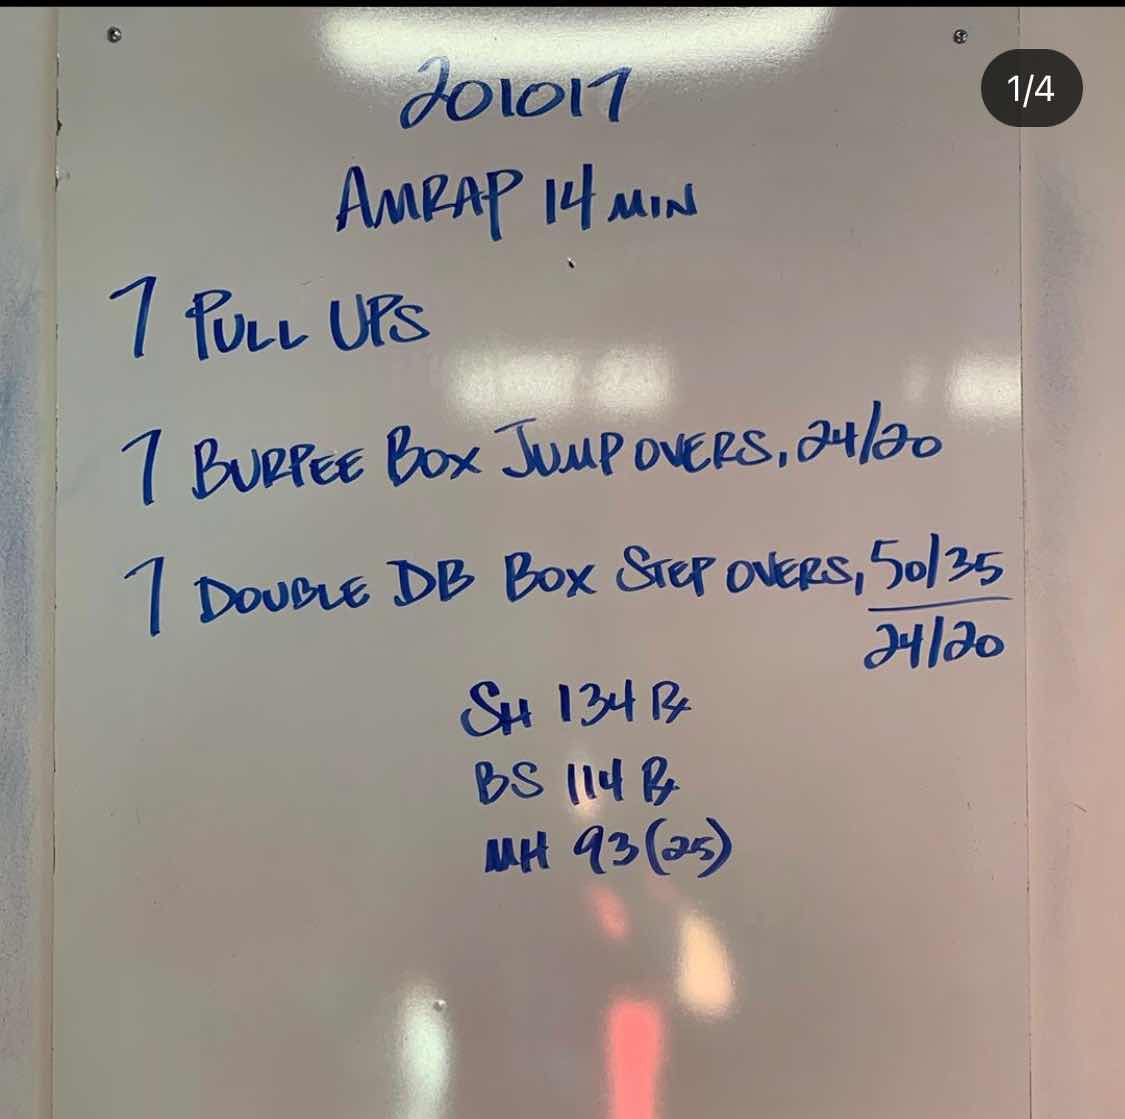 201017
1/4
AMRAP 14 MIN
7 PULL UPS
7 BURPEE BOX JUMP OVERS, 24/20
7 DOUBLE DB BOX STEP OVERS, 50/35
24/20
SH 134 Rx
BS 114 Rx
MH 93 (25)